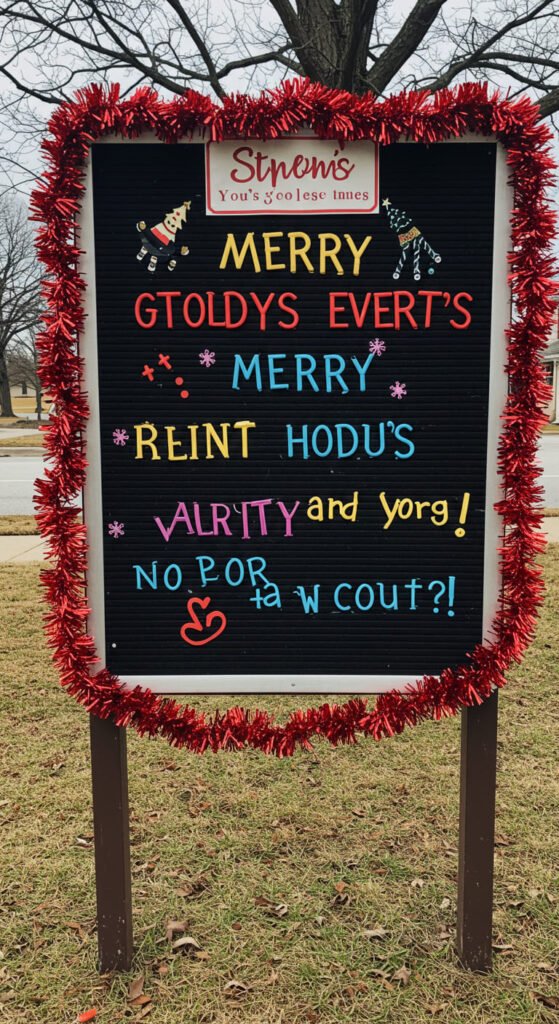 Stpoms
You's goolese tnues
MERRY
GTOLDYS EVERT'S
MERRY
REINT HODU'S
VALRITY and yorg!
NO POR
ta W COUT?!